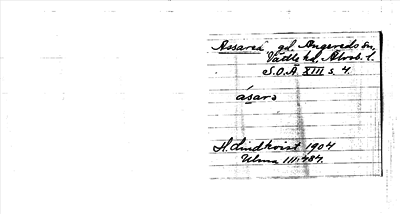 Assared gd. Angereds sn,
Vättle hd, Älvsb. l.
S.O.Ä. XIII s. 4.
åsarə
H. Lindkvist 1904
Ulma 111:484.